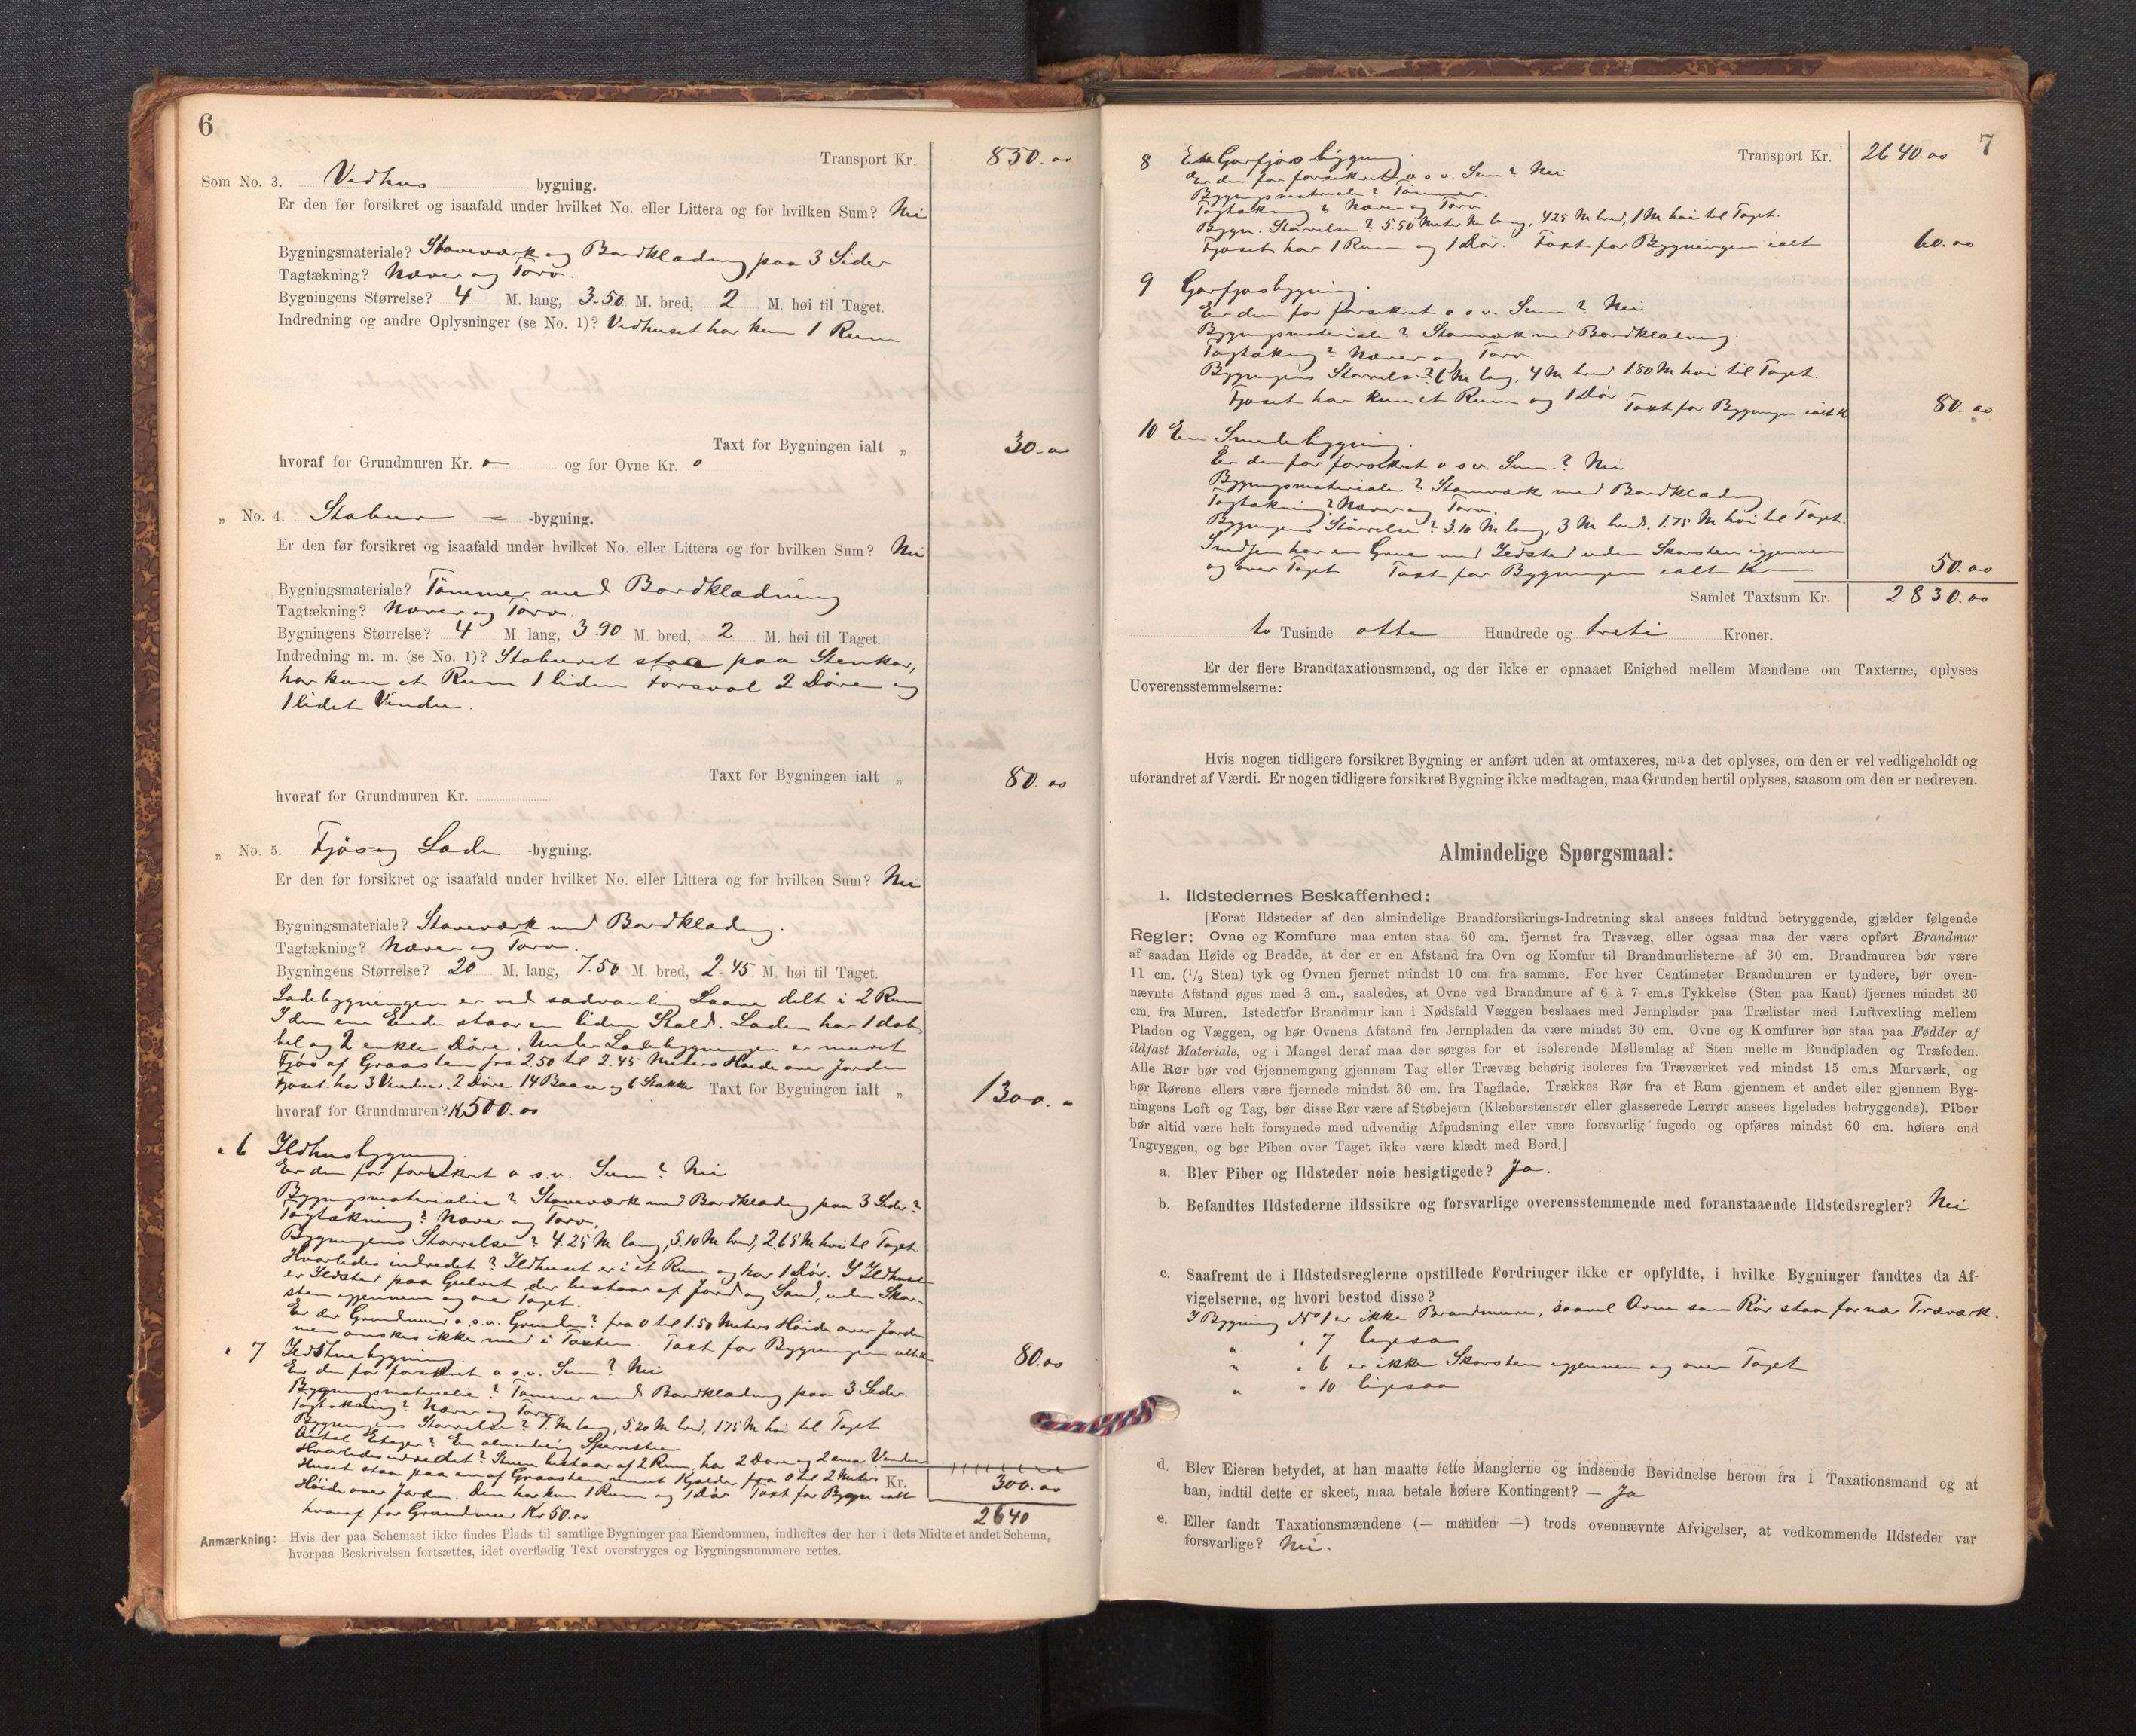 6
Transport Kr. 850.00
Som No. 3. Vedhus bygning.
Er den før forsikret og isaafald under hvilket No. eller Littera og for hvilken Sum? Nei
Bygningsmateriale? Staveværk og Bordklædning paa 3 Sider
Tagtækning? Næver og Torv.
Bygningens Størrelse? 4 M. lang, 3.50 M. bred, 2 M. høi til Taget.
Indredning og andre Oplysninger (se No. 1)? Vedhuset har kun 1 Rum
Taxt for Bygningen ialt „ 30.00
hvoraf for Grundmuren Kr. 0 og for Ovne Kr. 0
„ No. 4. Stabur — -bygning.
Er den før forsikret og isaafald under hvilket No. eller Littera og for hvilken Sum? Nei
Bygningsmateriale? Tømmer med Bordklædning
Tagtækning? Næver og Torv.
Bygningens Størrelse? 4 M. lang, 3.90 M. bred, 2 M. høi til Taget.
Indredning m. m. (se No. 1)? Staburet staa paa Stenkar,
har kun et Rum 1 liden Forsval 2 Døre og
1 lidet Vindu.
Taxt for Bygningen ialt „ 80.00
hvoraf for Grundmuren Kr.
„ No. 5. Fjøs og Lade -bygning.
Er den før forsikret og isaafald under hvilket No. eller Littera og for hvilken Sum? Nei
Bygningsmateriale? Staveværk med Bordklædng.
Tagtækning? Næver og Torv.
Bygningens Størrelse? 20 M. lang, 7.50 M. bred, 2.45 M. høi til Taget.
Ladebygningen er ved sædvanlig Laave delt i 2 Rum
I den ene Ende staar en liden Stald. Laden har 1 dob-
bel og 2 enkle Døre. Under Ladebygningen er muret
Fjøs af Graasten fra 2.50 til 2.45 Meters Høide over Jorden
Fjøset har 3 Vinduer. 2 Døre 14 Baase og 6 Stakke Taxt for Bygningen ialt „ 1300.„
hvoraf for Grundmuren? Kr 500.00
„ 6 Ildhusbygning.
Er den før forsikret o s.v. Sum? Nei
Bygningsmateriale? Staveværk med Bordklædng paa 3 Sider?
Tagtækning? Næver og Torv.
Bygningens Størrelse? 4.25 M lang, 5.10 M bred, 2.65 M høi til Taget.
Hvorledes indredet? Ildhuset er i et Rum og har 1 Dør. I Ildhuset
er Ildsted paa Gulvet der bestaar af Jord og Sand, uden Skor-
sten igjennem og over Taget.
Er der Grundmur o.s.v. Grunden? fra 0 til 1.50 Meters Høide over Jorden
men ønskes ikke med i Taxten. Taxt for Bygningen ialt Kr 80.00
„ 7 Ildstuebygning
Er den før forsikret o s.v. Sum? Nei
Bygningsmateriale? Tømmer med Bordklædng paa 3 Sider.
Tagtækning? Næver og Torv
Bygningens Størrelse? 7. M lang, 5.20 M bred, 1.75 M høi til Taget
Antal Etager? En almindelig Sperrestue
Hvorledes indredet? Stuen bestaar af 2 Rum, har 2 Døre og 2 smaa Vinduer
Huset staa paa en af Graasten muret Kjelder fra 0 til 2 Meters Kr. 300.00
Høide over Jorden. Den har kun 1 Rum og 1 Dør Taxt for Bygn ialt
hvoraf for Grundmur Kr 50.00 2640
Anmærkning: Hvis der paa Schemaet ikke findes Plads til samtlige Bygninger paa Eiendommen, indheftes der her i dets Midte et andet Schema,
hvorpaa Beskrivelsen fortsættes, idet overflødig Text overstryges og Bygningsnummere rettes.
7
Transport Kr. 2640.00
8 En Garfjøsbygning.
Er den før forsikret o s v. Sum? Nei
Bygningsmateriale? Tømmer.
Tagtækning? Næver og Torv
Bygn. Størrelse? 5.50 Meter M lang, 4.25 M bred, 1 M høi til Taget.
Fjøset har 1 Rum og 1 Dør. Taxt for Bygningen ialt 60.00
9 Garfjøsbygning.
Er den før forsikret o s v. Sum? Nei
Bygningsmateriale? Staveværk med Bordklædning.
Tagtækng? Næver og Torv
Bygningens Størrelse? 6 M lang, 4 M bred 1.80 M høi til Taget.
Fjøset har kun et Rum og 1 Dør Taxt for Bygningen ialt Kr 80.00
10 En Smedebygning.
Er den før forsikret o s v. Sum.? Nei
Bygningsmateriale? Staveværk med Bordklædng.
Tagtækning? Næver og Torv.
Bygningens Størrelse? 3.10 M lang, 3 M bred. 1.75 M høi til Taget.
Smedjen har en Grue med Ildsted uden Skorsten igjennem
og over Taget Taxt for Bygningen ialt Kr 50.00
Samlet Taxtsum Kr. 2830.00
to Tusinde otte Hundrede og treti Kroner.
Er der flere Brandtaxationsmænd, og der ikke er opnaaet Enighed mellem Mændene om Taxterne, oplyses
Uoverensstemmelserne:
Hvis nogen tidligere forsikret Bygning er anført uden at omtaxeres, maa det oplyses, om den er vel vedligeholdt og
uforandret af Værdi. Er nogen tidligere forsikret Bygning ikke medtagen, maa Grunden hertil oplyses, saasom om den er nedreven.
Almindelige Spørgsmaal:
1. Ildstedernes Beskaffenhed:
[Forat Ildsteder af den almindelige Brandforsikrings-Indretning skal ansees fuldtud betryggende, gjælder følgende
Regler: Ovne og Komfure maa enten staa 60 cm. fjernet fra Trævæg, eller ogsaa maa der være opført Brandmur
af saadan Høide og Bredde, at der er en Afstand fra Ovn og Komfur til Brandmurlisterne af 30 cm. Brandmuren bør være
11 cm. (1/2 Sten) tyk og Ovnen fjernet mindst 10 cm. fra samme. For hver Centimeter Brandmuren er tyndere, bør oven-
nævnte Afstand øges med 3 cm., saaledes, at Ovne ved Brandmure af 6 à 7 cm.s Tykkelse (Sten paa Kant) fjernes mindst 20
cm. fra Muren. Istedetfor Brandmur kan i Nødsfald Væggen beslaaes med Jernplader paa Trælister med Luftvexling mellem
Pladen og Væggen, og bør Ovnens Afstand fra Jernpladen da være mindst 30 cm. Ovne og Komfurer bør staa paa Fødder af
ildfast Materiale, og i Mangel deraf maa der sørges for et isolerende Mellemlag af Sten mellem Bundpladen og Træfoden.
Alle Rør bør ved Gjennemgang gjennem Tag eller Trævæg behørig isoleres fra Træverket ved mindst 15 cm.s Murværk, og
bør Rørene ellers være fjernede mindst 30 cm. fra Tagflade. Trækkes Rør fra et Rum gjennem et andet eller gjennem Byg-
ningens Loft og Tag, bør disse Rør være af Støbejern (Klæberstensrør eller glasserede Lerrør ansees ligeledes betryggende). Piber
bør altid være helt forsynede med udvendig Afpudsning eller være forsvarlig fugede og opføres mindst 60 cm. høiere end
Tagryggen, og bør Piben over Taget ikke være klædt med Bord.]
a. Blev Piber og Ildsteder nøie besigtigede? Ja.
b. Befandtes Ildstederne ildssikre og forsvarlige overensstemmende med foranstaaende Ildstedsregler? Nei
c. Saafremt de i Ildstedsreglerne opstillede Fordringer ikke er opfyldte, i hvilke Bygninger fandtes da Af-
vigelserne, og hvori bestod disse?
I Bygning No 1 er ikke Brandmure, saavel Ovne som Rør staa for nær Træværk.
„ „ 7 ligesaa
„ „ 6 er ikke Skorsten igjennem og over Taget
„ „ 10 ligesaa
d. Blev Eieren betydet, at han maatte rette Manglerne og indsende Bevidnelse herom fra 1 Taxationsmand og at
han, indtil dette er skeet, maa betale høiere Kontingent? — Ja
e. Eller fandt Taxationsmændene (— manden —) trods ovennævnte Afvigelser, at vedkommende Ildsteder var
forsvarlige? Nei.